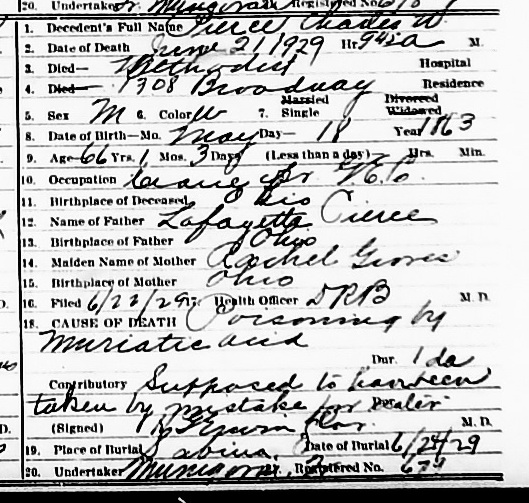 20. Undertaker Registered No.
1. Decedent's Full Name Pierce Charles W
2. Date of Death June 21 1929 Hr. 945a M.
3. Died— Methodist Hospital
4. Died— 1308 Broadway Residence
Married Divorced
5. Sex M 6. Color W 7. Single Widowed
8. Date of Birth—Mo. May Day— 18 Year 1863
9. Age 66 Yrs. 1 Mos. 3 Days (Less than a day) Hrs. Min.
10. Occupation
11. Birthplace of Deceased Ohio
12. Name of Father Lafayette Pierce
13. Birthplace of Father Ohio
14. Maiden Name of Mother Rachel Groves
15. Birthplace of Mother Ohio
16. Filed 6/22/29 17. Health Officer DRB M. D.
18. CAUSE OF DEATH Poisoning by
Muriatic acid
Dur. 1 da
Contributory Supposed to have been
taken by mistake for
(Signed) M. D.
19. Place of Burial Sabina, O Date of Burial 6/24/29
20. Undertaker Registered No.